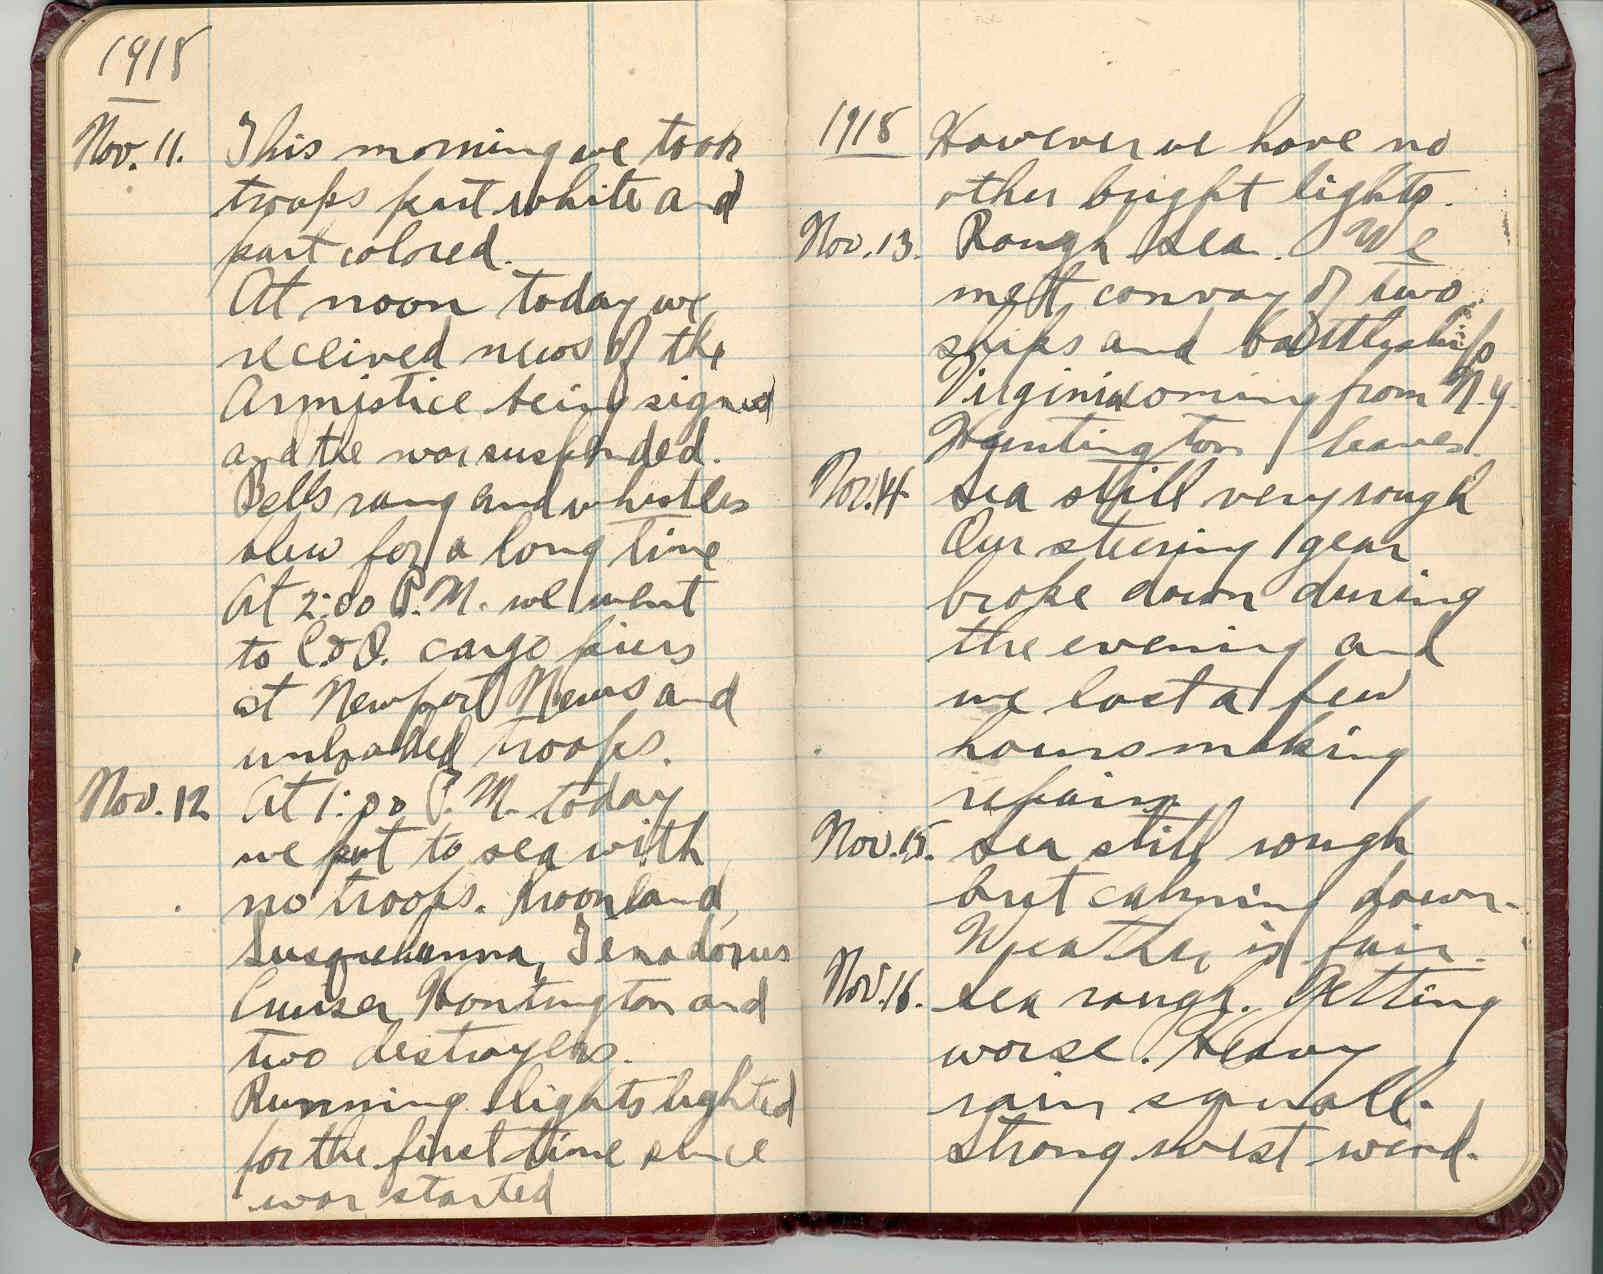 1918
Nov. 11. This morning we took
troops part white and
part colored.
At noon today we
received news of the
Armistice being signed
and the war suspended.
Bells rang and whistles
blew for a long time
At 2:00 P.M. we went
to C&O. cargo piers
at Newport News and
unloaded troops.
Nov. 12 At 1:00 P.M. today
we put to sea with
no troops. Kroonland,
Susquehanna, Tenadores
Cruiser Huntington and
two destroyers.
Running lights lighted
for the first time since
war started
1918 However we have no
other bright lights.
Nov. 13. Rough sea. We
met convoy of two
ships and battleship
Virginia coming from N.Y.
Huntington leaves.
Nov. 14. Sea still very rough
Our steering gear
broke down during
the evening and
we lost a few
hours making
repairs.
Nov. 15. Sea still rough
but calming down.
Weather is fair.
Nov. 16. Sea rough. Getting
worse. Heavy
rain squall.
Strong west wind.